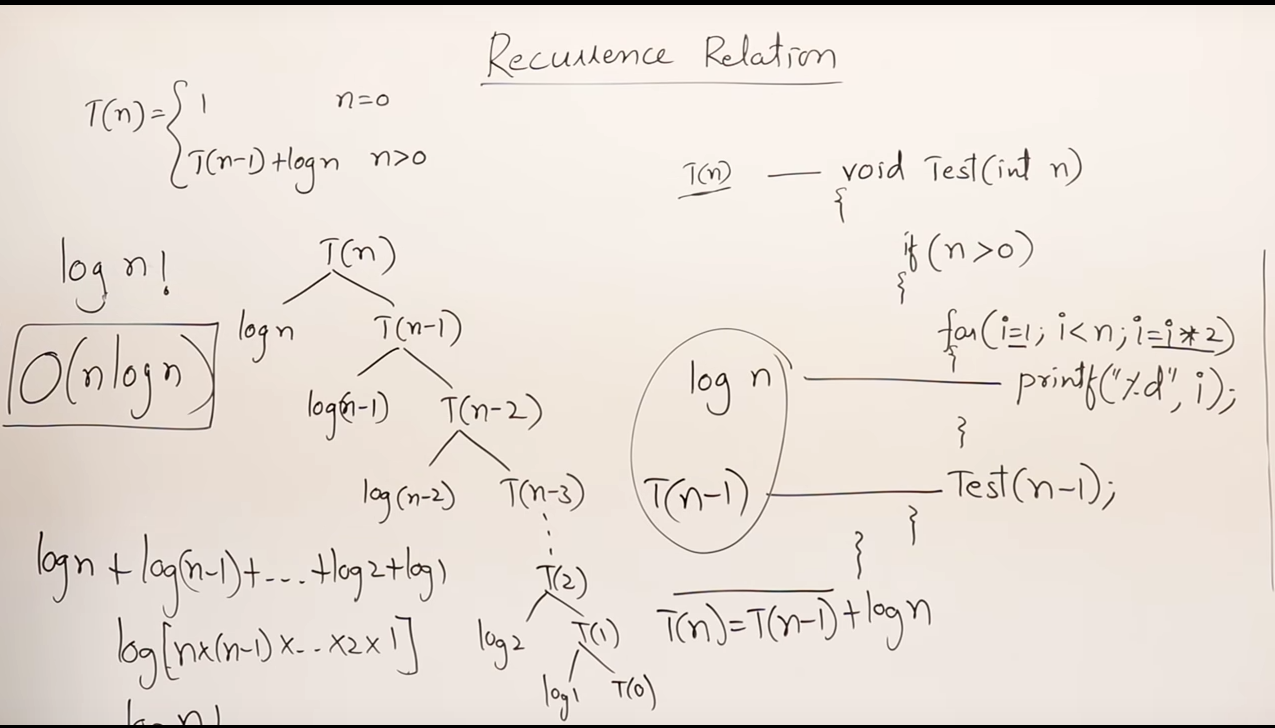 Recurrence Relation
T(n)= { 1 n=0
T(n-1)+logn n>0
log n!
O(nlogn)
T(n)
logn T(n-1)
log(n-1) T(n-2)
log(n-2) T(n-3)
T(2)
log2 T(1)
log1 T(0)
logn + log(n-1)+....+log2+log1
log[n×(n-1)×...×2×1]
log n!
T(n) — void Test(int n)
{
if(n>0)
{
for(i=1; i<n; i=i*2)
{
log n — printf("%d", i);
}
T(n-1) — Test(n-1);
}
}
T(n)=T(n-1)+logn